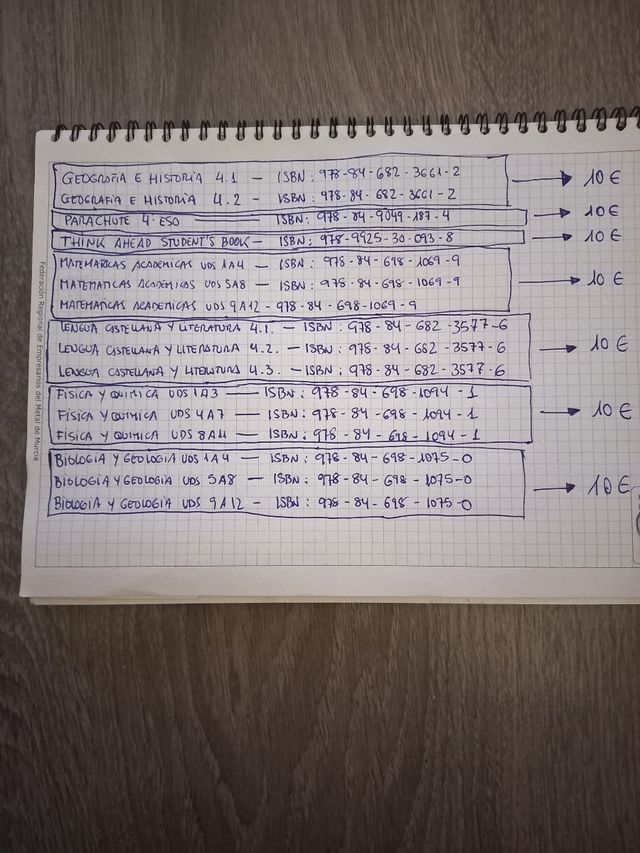 GEOGRAFIA E HISTORIA 4.1 — ISBN: 978-84-682-3661-2
GEOGRAFIA E HISTORIA 4.2 — ISBN: 978-84-682-3661-2
→ 10 €
PARACHUTE 4 ESO — ISBN: 978-84-9049-187-4
→ 10 €
THINK AHEAD STUDENT'S BOOK — ISBN: 978-9925-30-093-8
→ 10 €
MATEMATICAS ACADEMICAS UDS 1A4 — ISBN: 978-84-698-1069-9
MATEMATICAS ACADEMICAS UDS 5A8 — ISBN: 978-84-698-1069-9
MATEMATICAS ACADEMICAS UDS 9A12 - 978-84-698-1069-9
→ 10 €
LENGUA CASTELLANA Y LITERATURA 4.1. — ISBN: 978-84-682-3577-6
LENGUA CASTELLANA Y LITERATURA 4.2. — ISBN: 978-84-682-3577-6
LENGUA CASTELLANA Y LITERATURA 4.3. — ISBN: 978-84-682-3577-6
→ 10 €
FÍSICA Y QUIMICA UDS 1A3 — ISBN: 978-84-698-1094-1
FÍSICA Y QUIMICA UDS 4A7 — ISBN: 978-84-698-1094-1
FÍSICA Y QUIMICA UDS 8A11 — ISBN: 978-84-698-1094-1
→ 10 €
BIOLOGIA Y GEOLOGIA UDS 1A4 — ISBN: 978-84-698-1075-0
BIOLOGIA Y GEOLOGIA UDS 5A8 — ISBN: 978-84-698-1075-0
BIOLOGIA Y GEOLOGIA UDS 9A12 — ISBN: 978-84-698-1075-0
→ 10 €
Federación Regional de Empresarios del Metal de Murcia